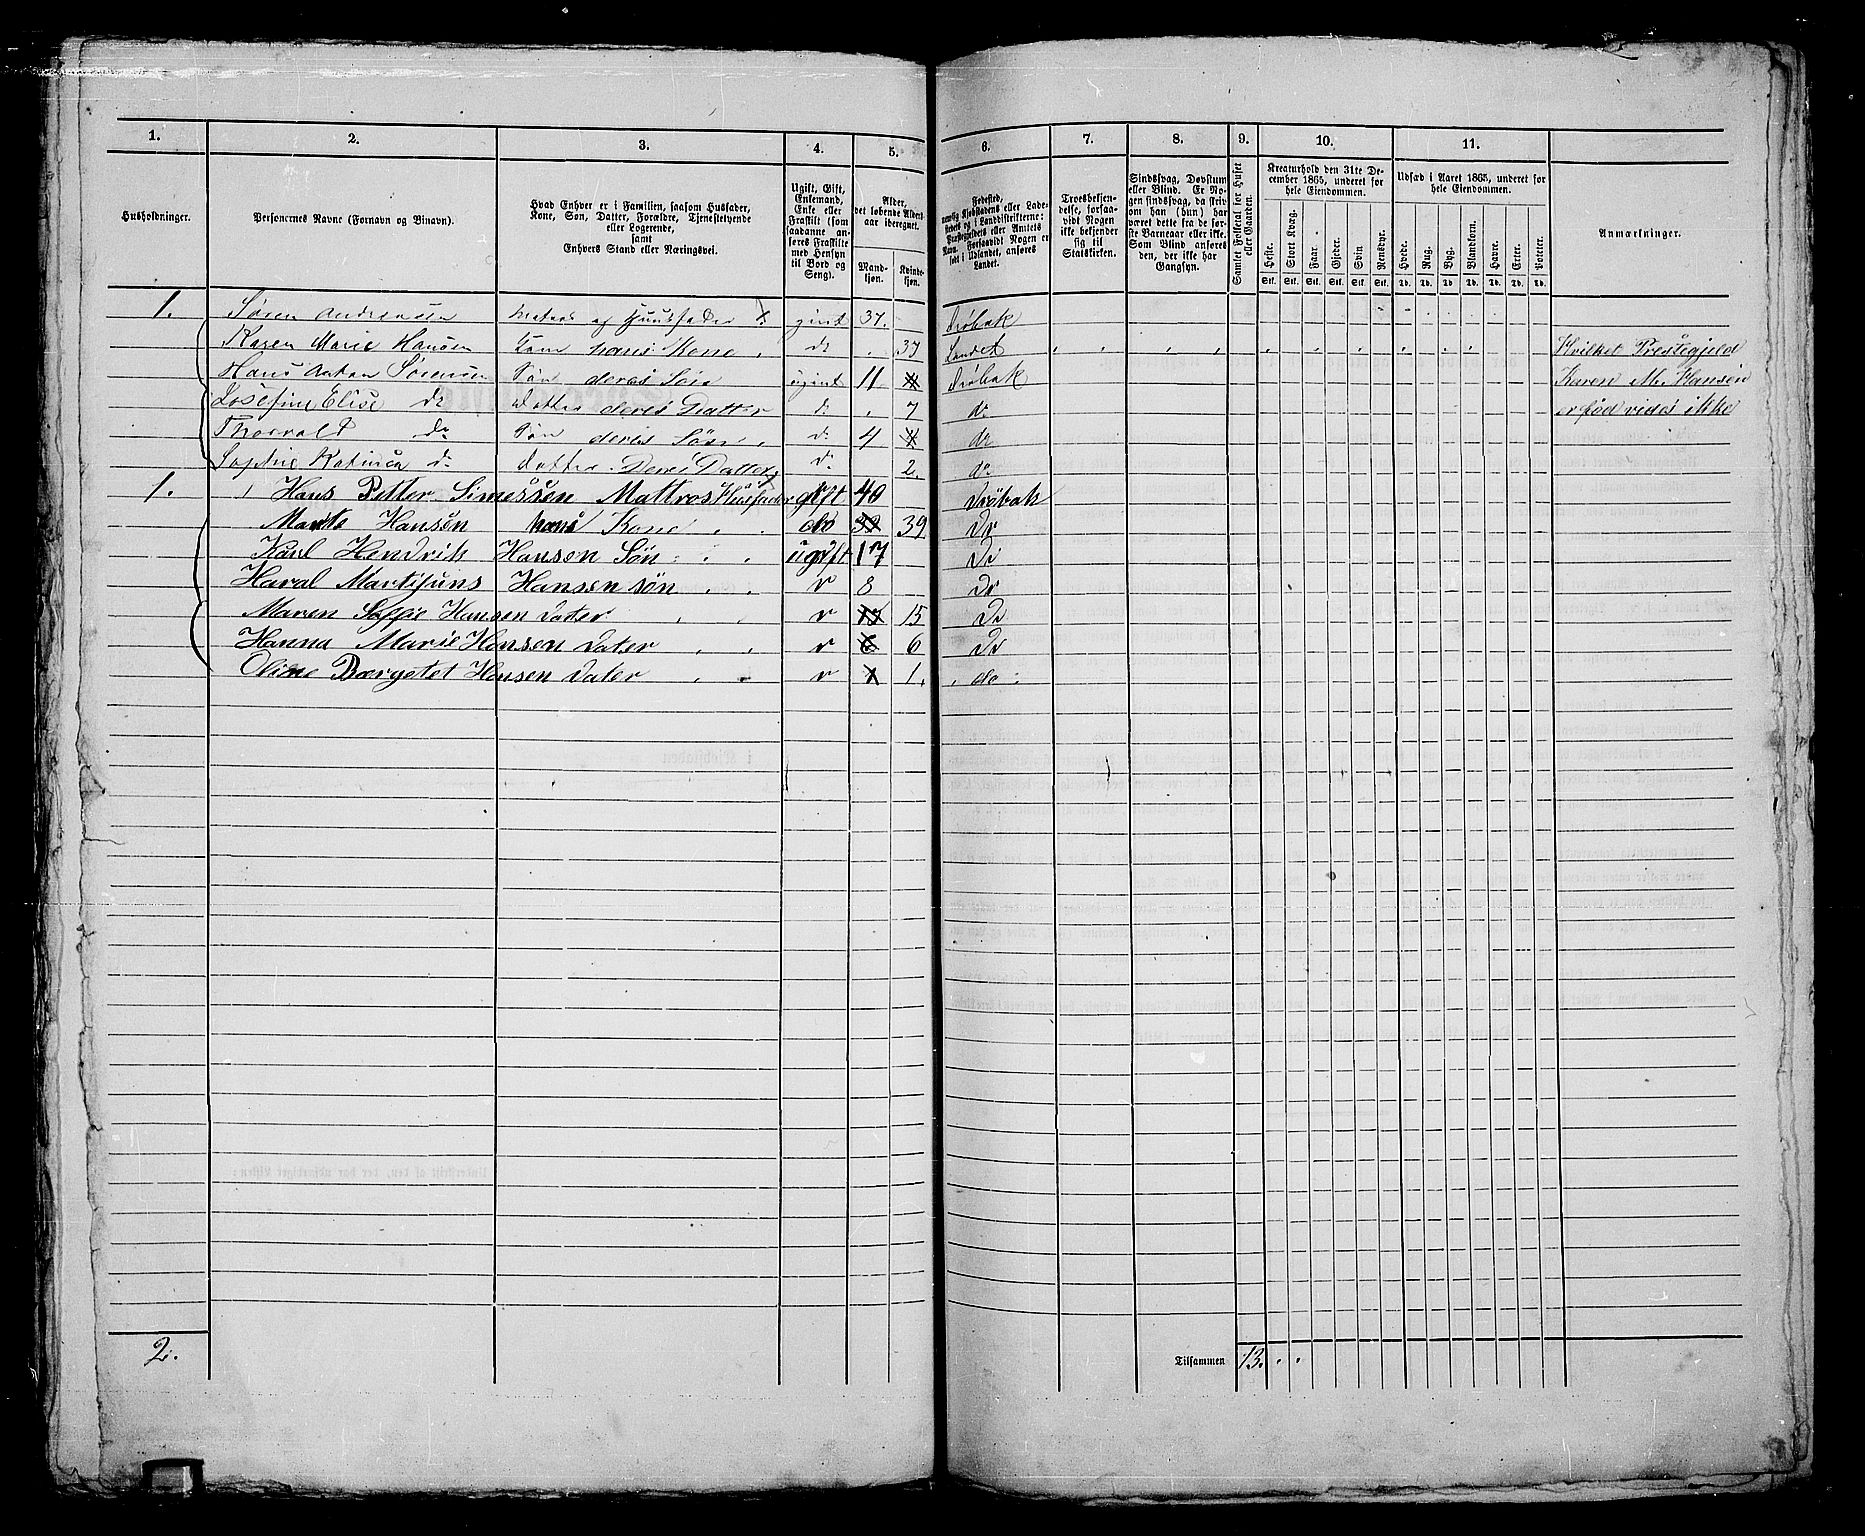 1. 2. 3. 4. 5. 6. 7. 8. 9. 10. 11.
Husholdninger.
Personernes Navne (Fornavn og Binavn).
Hvad Enhver er i Familien, saasom Husfader,
Kone, Søn, Datter, Forældre, Tjenestetyende
eller Logerende,
samt
Enhvers Stand eller Næringsvei.
Ugift, Gift,
Enkemand,
Enke eller
Fraskilt (som
saadanne an-
føres Fraskilte
med Hensyn
til Bord og
Seng).
Alder,
det løbende Alders-
aar iberegnet.
Mand-
kjøn.
Kvinde-
kjøn.
Fødested,
nemlig Kjøbstadens eller Lade-
stedets og i Landdistrikterne:
Præstegjeldets eller Amtets
Navn. Forsaavidt Nogen er
født i Udlandet, anføres
Landet.
Troesbekjen-
delse, forsaa-
vidt Nogen
ikke bekjender
sig til
Statskirken.
Sindssvag, Døvstum
eller Blind. Er No-
gen sindssvag, da skriv
om han (hun) har
været dette fra de før-
ste Barneaar eller ikke.
Som Blind anføres
den, der ikke har
Gangsyn.
Samlet Folketal for Huset
eller Gaarden.
Kreaturhold den 31te De-
cember 1865, underet for
hele Eiendommen.
Heste. Stort Kvæg. Faar. Gjeder. Svin Rensdyr.
Stk. Stk. Stk. Stk. Stk. Stk.
Udsæd i Aaret 1865, underet for
hele Eiendommen.
Hvede. Rug. Byg. Blandkorn. Havre. Erter. Poteter.
Td. Td. Td. Td. Td. Td. Td.
Anmærkninger.
1. Søren Andreassen matros og Huusfader givt 37. Drøbak
Karen Marie Hansen Kone hans Kone do 37 Landet Hvilket Prestegjeld
Hans Anton Sørensen Søn deres Søn ugivt 11 Drøbak Karen M. Hansen
Josefine Elise do Datter deres Datter do 7 do er fød vides ikke
Thorvald do Søn deres Søn do 4 do
Sophie Katinka do datter Deres Datter do 2. do
1. Hans Petter Simessen Mattros Husfader gift 40 Drøbak
Marte Hansen hans Kone do 39 39 Do
Karl Hendrik Hansen Søn ugift 17 Do
Haral Martijuns Hansen søn v 8 Do
Maren Soffie Hansen Dater v 15 15 Do
Hanna Marie Hansen Dater v 6 6 Do
Oline Bærgetet Hansen Dater v 1 1. do
2. Tilsammen 13.